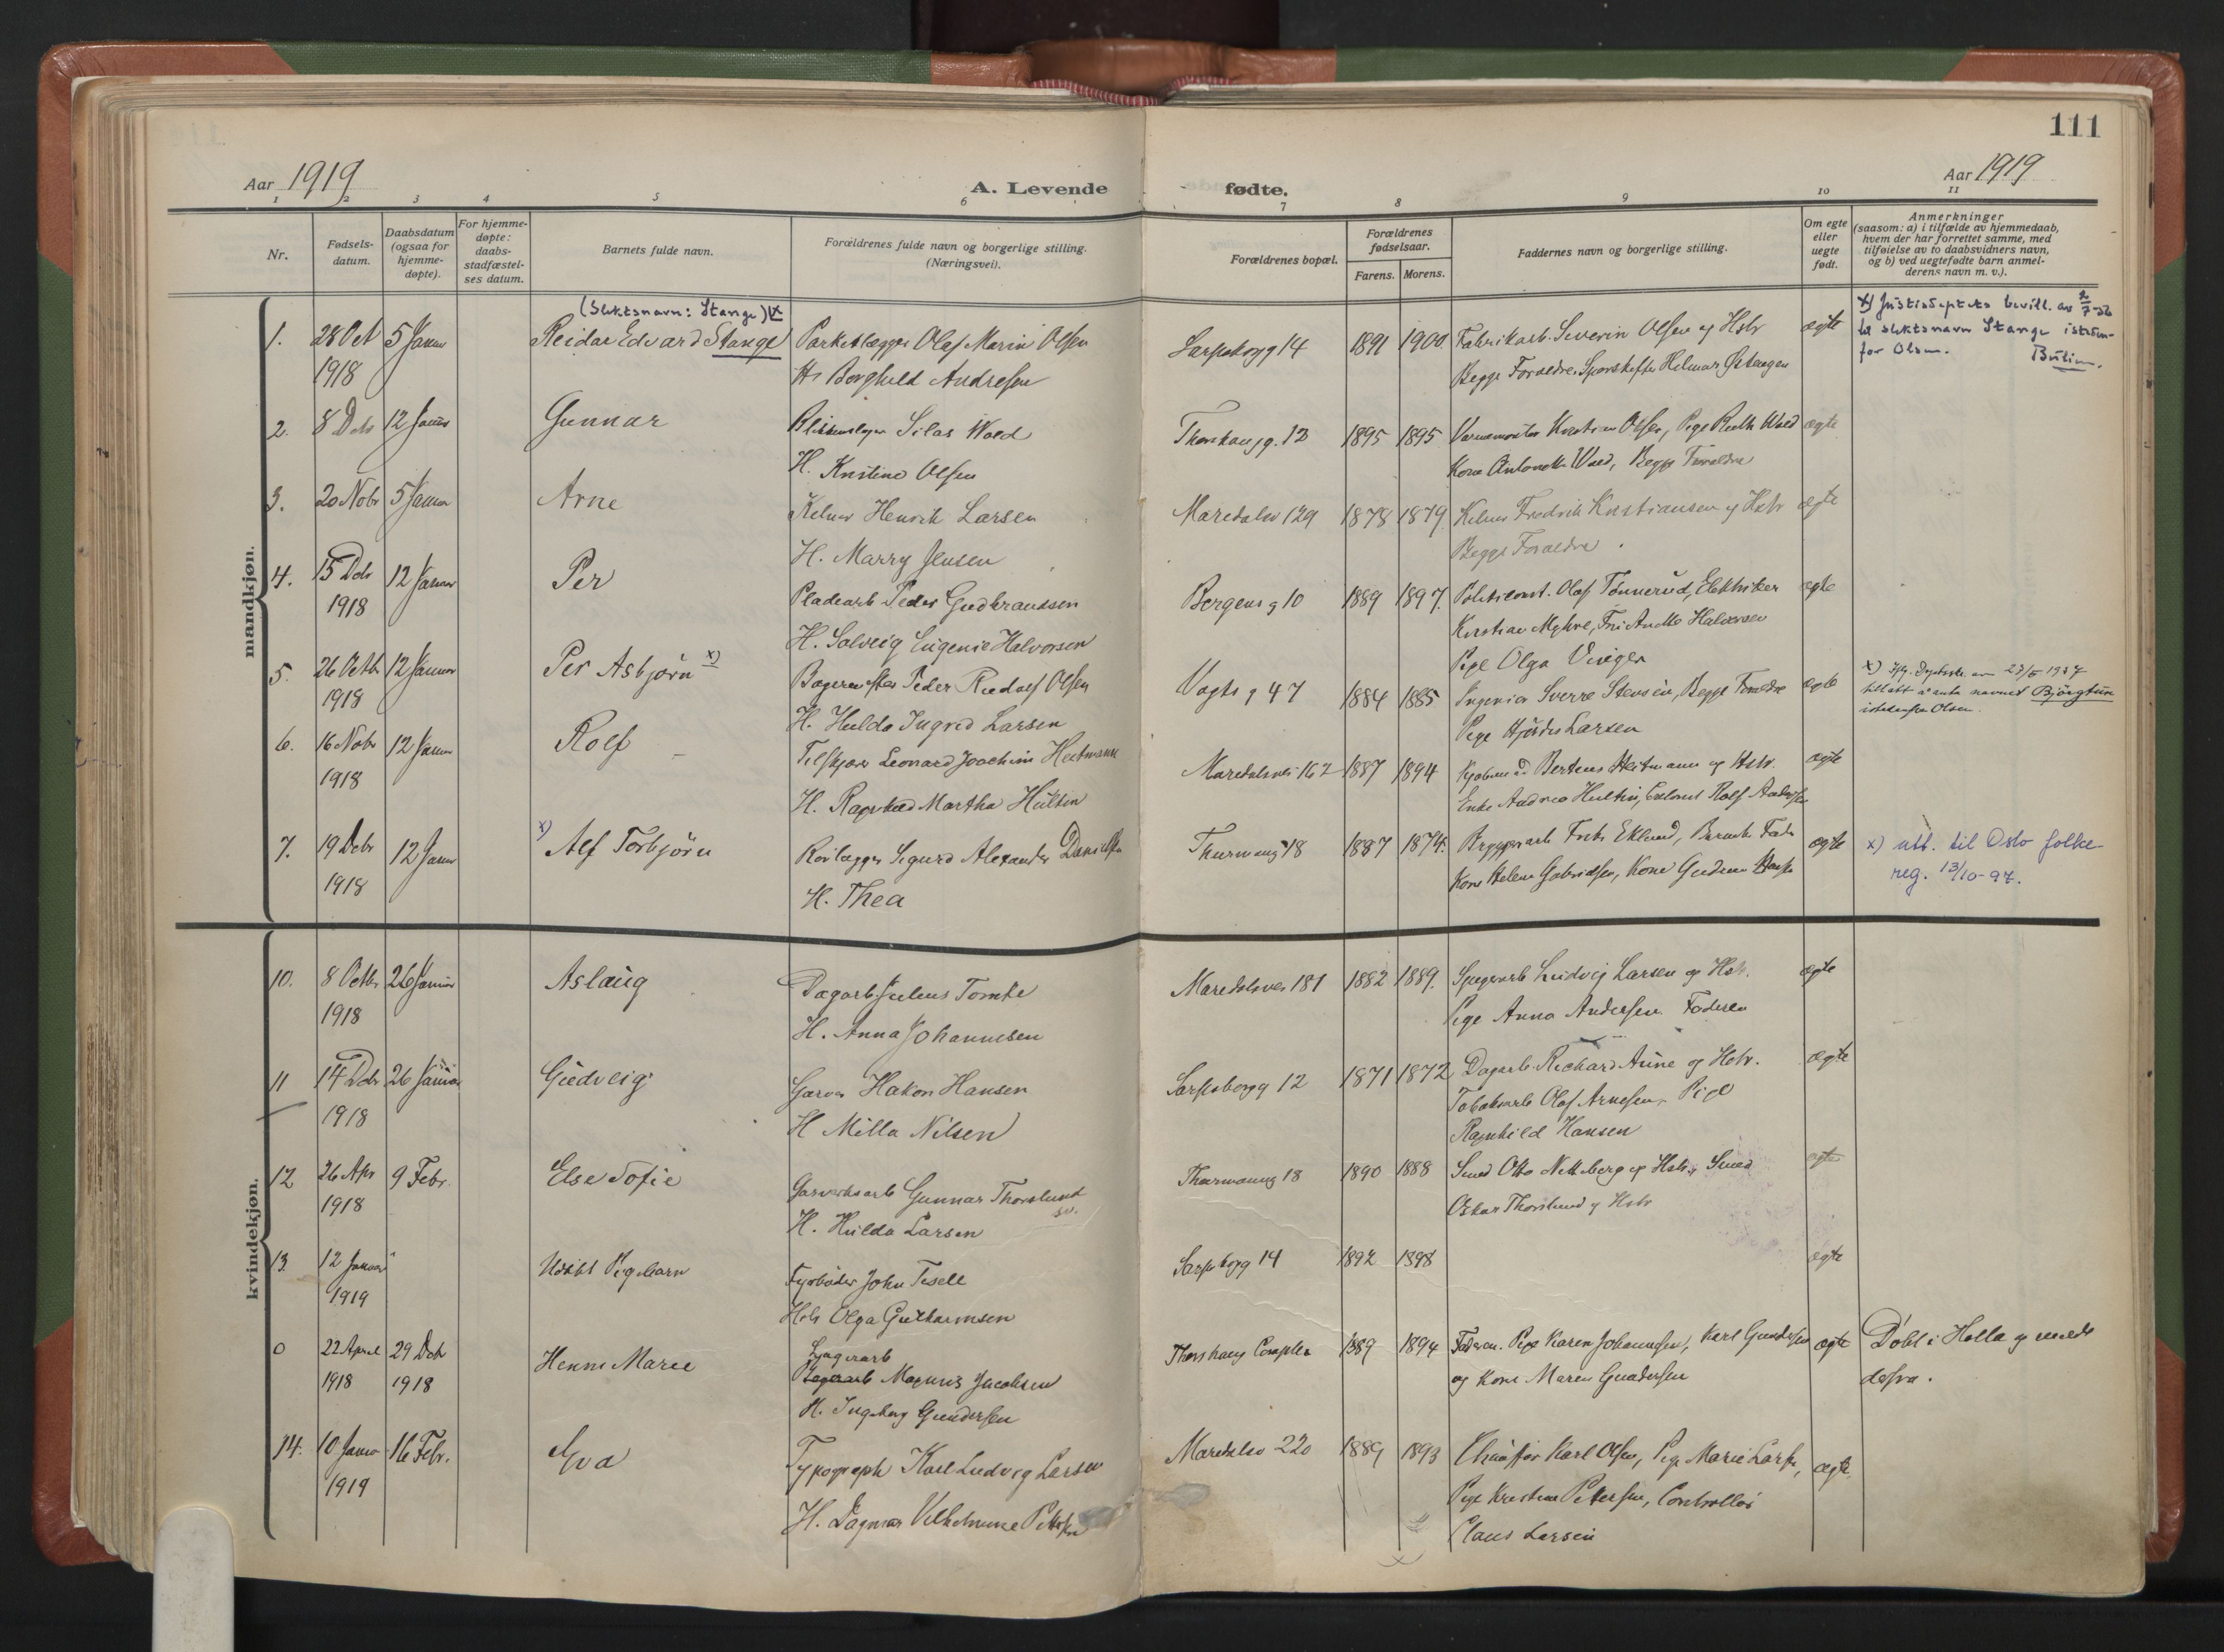 111
Aar 1919
A. Levende fødte.
Aar 1919
1 2 3 4 5 6 7 8 9 10 11
Nr.
Fødsels-
datum.
Daabsdatum
(ogsaa for
hjemme-
døpte).
For hjemme-
døpte:
daabs-
stadfæstel-
ses datum.
Barnets fulde navn.
Forældrenes fulde navn og borgerlige stilling.
(Næringsvei).
Forældrenes bopæl.
Forældrenes
fødselsaar.
Farens. Morens.
Faddernes navn og borgerlige stilling.
Om egte
eller
uegte
født.
Anmerkninger
(saasom: a) i tilfælde av hjemmedaab,
hvem der har forrettet samme, med
tilføielse av to daabsvidners navn,
og b) ved uegtefødte barn anmel-
derens navn m. v.).
mandkjøn.
(Slektsnavn: Stange) x
1. 28 Oct 5 Januar Reidar Edvard Stange Parketlægger Olaf Marin Olsen Sarpsborgg 14 1891 1900 Fabrikarb. Severin Olsen og Hstr ægte
1918 H. Borghild Andresen Begge Forældre
x) Justisdeptets bevill. av
slektsnavn Stange isteden-
for Olsen.
2. 8 Dcb 12 Januar Gunnar Silas Wold Thorshaugg. 13 1895 1895 Kristian Olsen, Pige Ruth Wold ægte
H. Kristine Olsen Kone Wold, Begge Forældre
3. 20 Nobr 5 Januar Arne Kelner Henrik Larsen Maredalsv 129 1878 1879 Kelner Fredrik Kristiansen og Hstr ægte
H. Marry Jensen Begge Forældre
4. 15 Dcb 12 Januar Per Pladearb Peder Gudbrandsen Bergensg 10 1889 1897. Politiconst. Olaf Tønnerud, Elektriker ægte
1918 H. Solveig Eugenie Halvorsen Kristian Myhre, Halvorsen
Pige Olga
5. 26 Octbr 12 Januar Per Asbjørn x) Bagermester Peder Rudolf Olsen Vogtsg 47 1884 1885 Ingeniør Sverre Stensen, Begge Forældre ægte
1918 H. Hulda Ingrid Larsen Pige Hjørdis Larsen
x) 1937
tillatt å anta navnet Bjørgtun
istedenfor Olsen.
6. 16 Nobr 12 Januar Rolf Leonard Joachim Heitmann Maredalsvei 162 1887 1894 Kjøbmand Bertens Heitmann og Hstr. ægte
1918 H. Ragnhild Martha Hultin Enke Andrea Hultin, Rolf Andersen
7. 19 Dcbr 12 Januar x) Alf Torbjørn Rørlægger Sigurd Alexander Danielsen Thurmannsg 18 1887 1874. Bryggeriarb Eklund, Barnets Fader ægte
1918 H. Thea Kone Helene Gabrielsen, Kone Gudrun
x) att. til Oslo folke-
reg. 13/10-97.
kvindekjøn.
10. 8 Octbr 26 Januar Aslaug Dagarb Julius Tomte Maredalsvei 181 1882 1889. Ludvig Larsen og Hstr. ægte
1918 H. Anna Johannesen Pige Anna Andersen Faderen
11 14 Dcbr 26 Januar Gudveig Garver Hakon Hansen Sarpsborgg 12 1871 1872 Dagarb. Richard Aune og Hstr. ægte
1918 H Milla Nilsen Tobaksarb Olaf Arnesen, Pige
Ragnhild Hansen
12 26 Apr 9 Febr. Else Sofie Gasverksarb Gunnar Thorslund Thurmannsg 18 1890 1888 Smed Otto Netteberg og Hstr, Smed ægte
1918 H. Hulda Larsen Oskar Thorslund og Hstr
13. 12 Januar Udøbt Pigebarn Fyrbøder John Tisell Sarpsborgg 14 1892 1898 ægte
1919 Hstr Olga Guttormsen
0 22 April 29 Dcb Henni Marie Lagerarb Magnus Jacobsen Thorshaug 1889 1894 Faderen. Pige Karen Johannesen, Karl Gundersen ægte
1918 1918 H. Ingeborg Gundersen og Kone Maren Gundersen
Døbt i Holla og meldt
defra.
14. 10 Januar 16 Febr. Eva Typograph Karl Ludvig Larsen Maredalsv 220 1889 1893 Chauffør Karl Olsen, Pige Marie Larsen, ægte
1919 H. Dagmar Vilhelmine Pettersen Pige Kristine Petersen, Controllør
Claus Larsen